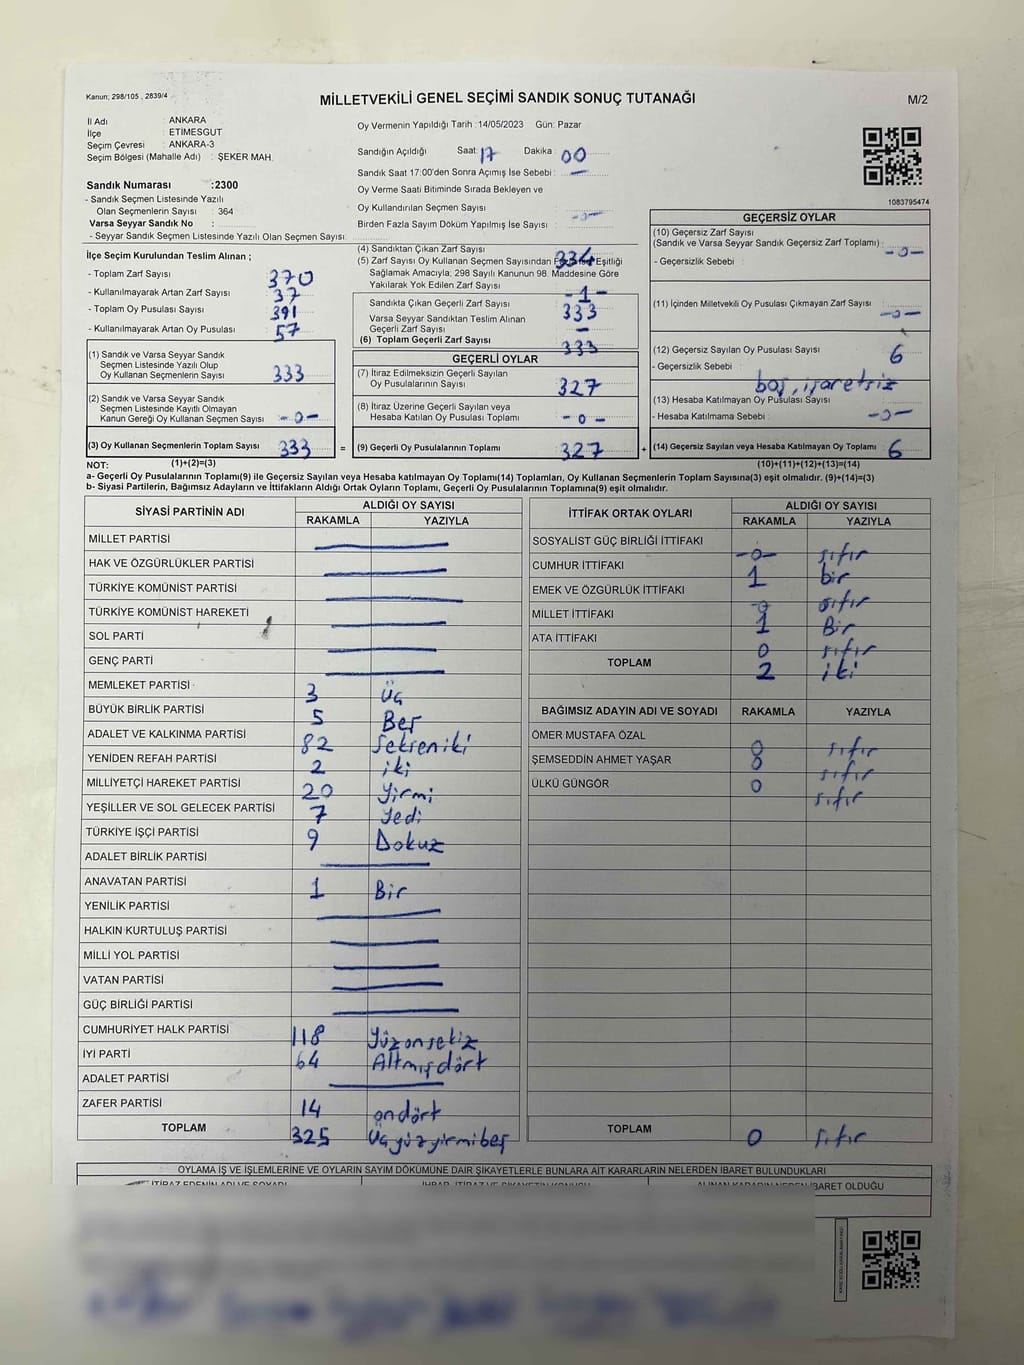 Kanun; 298/105 , 2839/4
MİLLETVEKİLİ GENEL SEÇİMİ SANDIK SONUÇ TUTANAĞI
M/2
İl Adı : ANKARA
İlçe : ETİMESGUT
Seçim Çevresi : ANKARA-3
Seçim Bölgesi (Mahalle Adı) : ŞEKER MAH.
Sandık Numarası :2300
- Sandık Seçmen Listesinde Yazılı
Olan Seçmenlerin Sayısı : 364
Varsa Seyyar Sandık No :
- Seyyar Sandık Seçmen Listesinde Yazılı Olan Seçmen Sayısı:
Oy Vermenin Yapıldığı Tarih :14/05/2023 Gün: Pazar
Sandığın Açıldığı Saat: 17 Dakika : 00
Sandık Saat 17:00'den Sonra Açımış İse Sebebi : —
Oy Verme Saati Bitiminde Sırada Bekleyen ve
Oy Kullandırılan Seçmen Sayısı
-0-
Birden Fazla Sayım Döküm Yapılmış İse Sayısı :
1083795474
İlçe Seçim Kurulundan Teslim Alınan ;
- Toplam Zarf Sayısı : 370
- Kullanılmayarak Artan Zarf Sayısı : 37
- Toplam Oy Pusulası Sayısı : 391
- Kullanılmayarak Artan Oy Pusulası : 57
(1) Sandık ve Varsa Seyyar Sandık
Seçmen Listesinde Yazılı Olup
Oy Kullanan Seçmenlerin Sayısı : 333
(2) Sandık ve Varsa Seyyar Sandık
Seçmen Listesinde Kayıtlı Olmayan
Kanun Gereği Oy Kullanan Seçmen Sayısı : -0-
(3) Oy Kullanan Seçmenlerin Toplam Sayısı : 333
(4) Sandıktan Çıkan Zarf Sayısı : 334
(5) Zarf Sayısı Oy Kullanan Seçmen Sayısından Eşitliği
Sağlamak Amacıyla, 298 Sayılı Kanunun 98. Maddesine Göre
Yakılarak Yok Edilen Zarf Sayısı : -1-
Sandıkta Çıkan Geçerli Zarf Sayısı : 333
Varsa Seyyar Sandıktan Teslim Alınan
Geçerli Zarf Sayısı : —
(6) Toplam Geçerli Zarf Sayısı : 333
GEÇERLİ OYLAR
(7) İtiraz Edilmeksizin Geçerli Sayılan
Oy Pusulalarının Sayısı : 327
(8) İtiraz Üzerine Geçerli Sayılan veya
Hesaba Katılan Oy Pusulası Toplamı : -0-
= (9) Geçerli Oy Pusulalarının Toplamı : 327
GEÇERSİZ OYLAR
(10) Geçersiz Zarf Sayısı
(Sandık ve Varsa Seyyar Sandık Geçersiz Zarf Toplamı) : -0-
- Geçersizlik Sebebi :
(11) İçinden Milletvekili Oy Pusulası Çıkmayan Zarf Sayısı : -0-
(12) Geçersiz Sayılan Oy Pusulası Sayısı : 6
- Geçersizlik Sebebi : boş, işaretsiz
(13) Hesaba Katılmayan Oy Pusulası Sayısı : -0-
- Hesaba Katılmama Sebebi :
+ (14) Geçersiz Sayılan veya Hesaba Katılmayan Oy Toplamı : 6
NOT: (1)+(2)=(3) (10)+(11)+(12)+(13)=(14)
a- Geçerli Oy Pusulaların Toplamı(9) ile Geçersiz Sayılan veya Hesaba katılmayan Oy Toplamı(14) Toplamları, Oy Kullanan Seçmenlerin Toplam Sayısına(3) eşit olmalıdır. (9)+(14)=(3)
b- Siyasi Partilerin, Bağımsız Adayların ve İttifakların Aldığı Ortak Oyların Toplamı, Geçerli Oy Pusulalarının Toplamına(9) eşit olmalıdır.
SİYASİ PARTİNİN ADI ALDIĞI OY SAYISI
RAKAMLA YAZIYLA
MİLLET PARTİSİ
HAK VE ÖZGÜRLÜKLER PARTİSİ
TÜRKİYE KOMÜNİST PARTİSİ
TÜRKİYE KOMÜNİST HAREKETİ
SOL PARTİ
GENÇ PARTİ
MEMLEKET PARTİSİ 3 Üç
BÜYÜK BİRLİK PARTİSİ 5 Beş
ADALET VE KALKINMA PARTİSİ 82 Seksen iki
YENİDEN REFAH PARTİSİ 2 iki
MİLLİYETÇİ HAREKET PARTİSİ 20 Yirmi
YEŞİLLER VE SOL GELECEK PARTİSİ 7 Yedi
TÜRKİYE İŞÇİ PARTİSİ 9 Dokuz
ADALET BİRLİK PARTİSİ
ANAVATAN PARTİSİ 1 Bir
YENİLİK PARTİSİ
HALKIN KURTULUŞ PARTİSİ
MİLLİ YOL PARTİSİ
VATAN PARTİSİ
GÜÇ BİRLİĞİ PARTİSİ
CUMHURİYET HALK PARTİSİ 118 Yüzonsekiz
İYİ PARTİ 64 Altmışdört
ADALET PARTİSİ
ZAFER PARTİSİ 14 ondört
TOPLAM 325 Üçyüzyirmibeş
İTTİFAK ORTAK OYLARI ALDIĞI OY SAYISI
RAKAMLA YAZIYLA
SOSYALİST GÜÇ BİRLİĞİ İTTİFAKI -0- sıfır
CUMHUR İTTİFAKI 1 bir
EMEK VE ÖZGÜRLÜK İTTİFAKI 0 sıfır
MİLLET İTTİFAKI 1 Bir
ATA İTTİFAKI 0 sıfır
TOPLAM 2 iki
BAĞIMSIZ ADAYIN ADI VE SOYADI RAKAMLA YAZIYLA
ÖMER MUSTAFA ÖZAL 0 sıfır
ŞEMSEDDİN AHMET YAŞAR 0 sıfır
ÜLKÜ GÜNGÖR 0 sıfır
TOPLAM 0 sıfır
OYLAMA İŞ VE İŞLEMLERİNE VE OYLARIN SAYIM DÖKÜMÜNE DAİR ŞİKAYETLERLE BUNLARA AİT KARARLARIN NELERDEN İBARET BULUNDUKLARI
İTİRAZ EDENİN ADI VE SOYADI İHBAR, İTİRAZ VE ŞİKAYETİN KONUSU ALINAN KARARIN NEDEN İBARET OLDUĞU